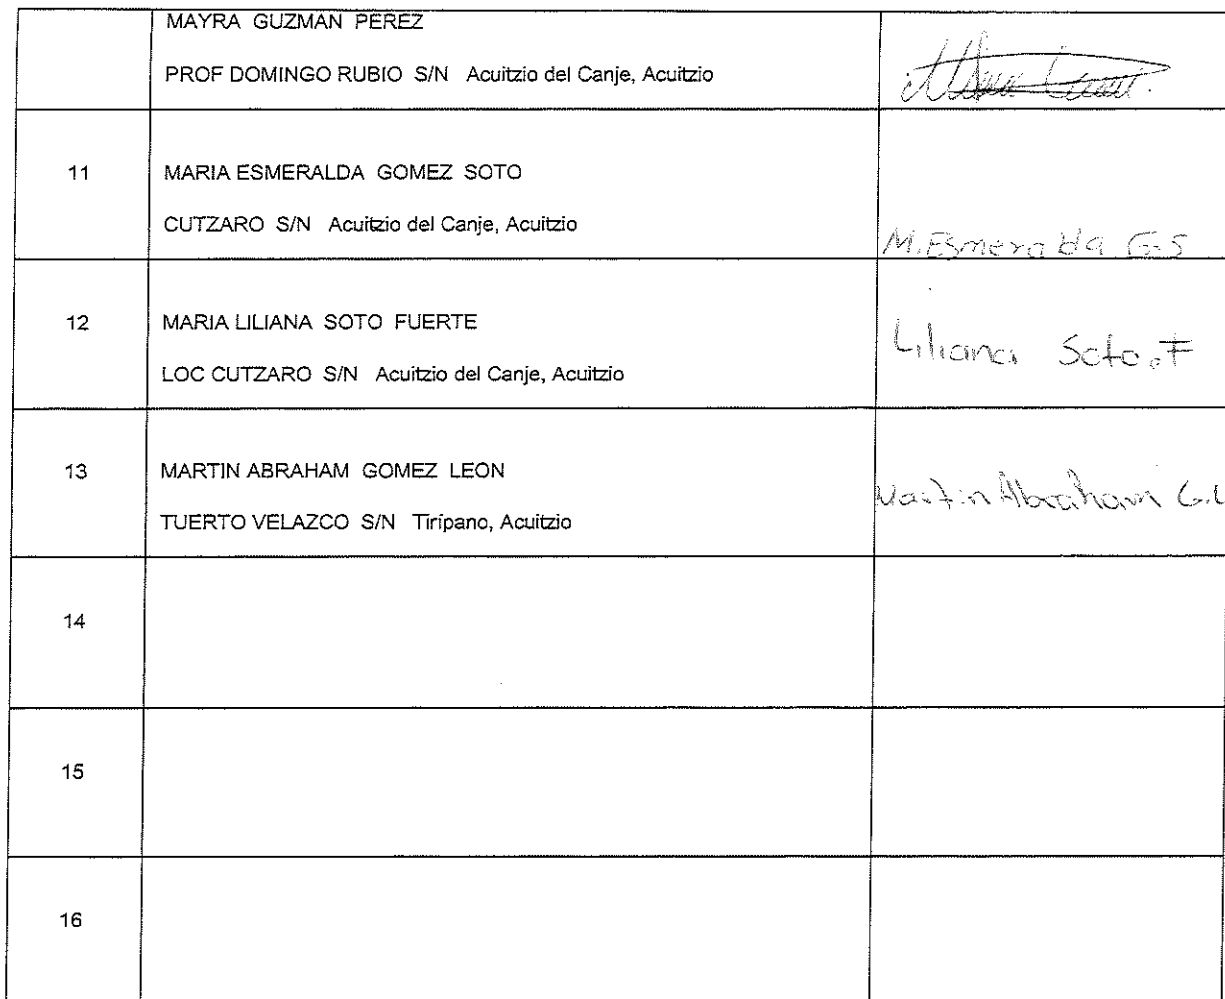 MAYRA GUZMAN PEREZ
PROF DOMINGO RUBIO S/N Acuitzio del Canje, Acuitzio
11
MARIA ESMERALDA GOMEZ SOTO
CUTZARO S/N Acuitzio del Canje, Acuitzio
M. Esmeralda G.S
12
MARIA LILIANA SOTO FUERTE
LOC CUTZARO S/N Acuitzio del Canje, Acuitzio
Liliana Soto.F
13
MARTIN ABRAHAM GOMEZ LEON
TUERTO VELAZCO S/N Tiripano, Acuitzio
Martin Abraham G.L
14
15
16